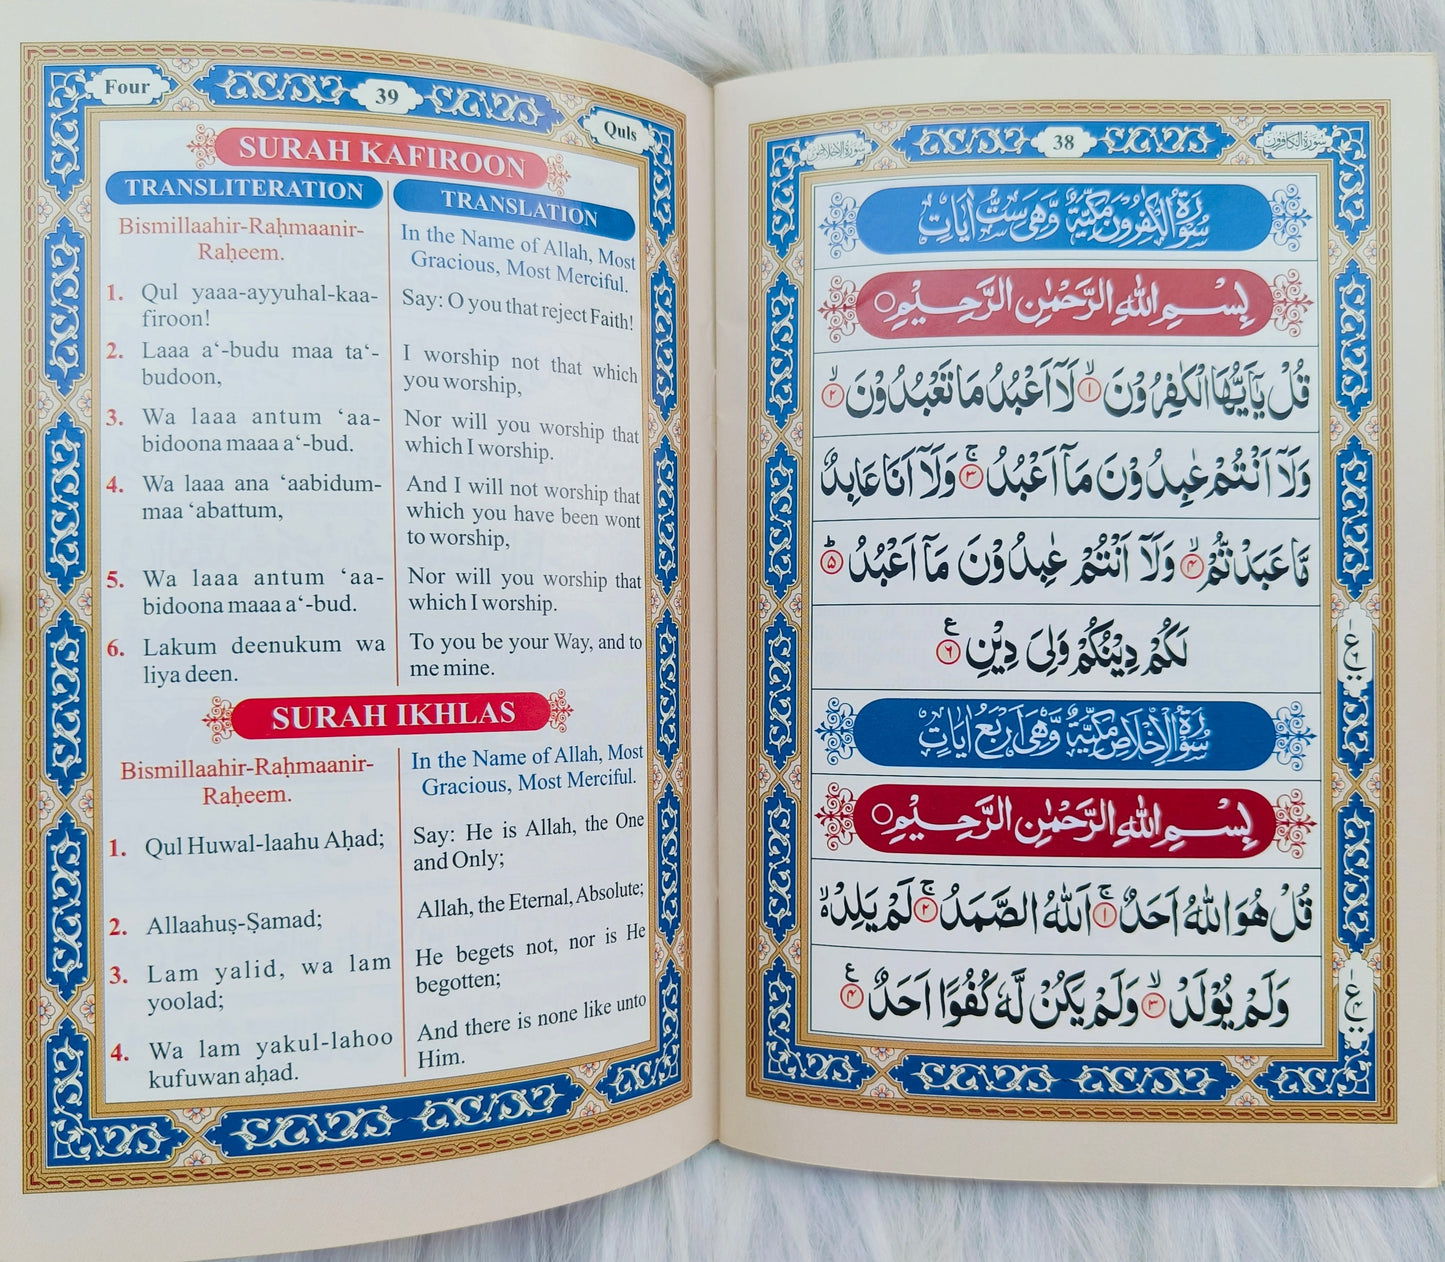 Four
39
Quls
SURAH KAFIROON
TRANSLITERATION
Bismillaahir-Raḥmaanir-
Raḥeem.
1. Qul yaaa-ayyuhal-kaa-
firoon!
2. Laaa a‘-budu maa ta‘-
budoon,
3. Wa laaa antum ‘aa-
bidoona maaa a‘-bud.
4. Wa laaa ana ‘aabidum-
maa ‘abattum,
5. Wa laaa antum ‘aa-
bidoona maaa a‘-bud.
6. Lakum deenukum wa
liya deen.
TRANSLATION
In the Name of Allah, Most
Gracious, Most Merciful.
Say: O you that reject Faith!
I worship not that which
you worship,
Nor will you worship that
which I worship.
And I will not worship that
which you have been wont
to worship,
Nor will you worship that
which I worship.
To you be your Way, and to
me mine.
SURAH IKHLAS
Bismillaahir-Raḥmaanir-
Raḥeem.
1. Qul Huwal-laahu Aḥad;
2. Allaahuṣ-Ṣamad;
3. Lam yalid, wa lam
yoolad;
4. Wa lam yakul-lahoo
kufuwan aḥad.
In the Name of Allah, Most
Gracious, Most Merciful.
Say: He is Allah, the One
and Only;
Allah, the Eternal, Absolute;
He begets not, nor is He
begotten;
And there is none like unto
Him.
سورة الكافرون
38
سورة الإخلاص
سُوْرَةُ الْكٰفِرُوْنَ مَكِّيَّةٌ وَّهِىَ سِتُّ اٰيَاتٍ
بِسْمِ اللّٰهِ الرَّحْمٰنِ الرَّحِيْمِ ○
قُلْ يٰٓاَيُّهَا الْكٰفِرُوْنَ ۙ۱ لَآ اَعْبُدُ مَا تَعْبُدُوْنَ ۙ۲
وَلَآ اَنْتُمْ عٰبِدُوْنَ مَآ اَعْبُدُ ۚ۳ وَلَآ اَنَا عَابِدٌ
مَّا عَبَدْتُّمْ ۙ۴ وَلَآ اَنْتُمْ عٰبِدُوْنَ مَآ اَعْبُدُ ؕ۵
لَكُمْ دِيْنُكُمْ وَلِىَ دِيْنِ ۶ ع
سُوْرَةُ الْاِخْلَاصِ مَكِّيَّةٌ وَّهِىَ اَرْبَعُ اٰيَاتٍ
بِسْمِ اللّٰهِ الرَّحْمٰنِ الرَّحِيْمِ ○
قُلْ هُوَ اللّٰهُ اَحَدٌ ۚ۱ اَللّٰهُ الصَّمَدُ ۚ۲ لَمْ يَلِدْ ۙ
وَلَمْ يُوْلَدْ ۙ۳ وَلَمْ يَكُنْ لَّهٗ كُفُوًا اَحَدٌ ۴ ع